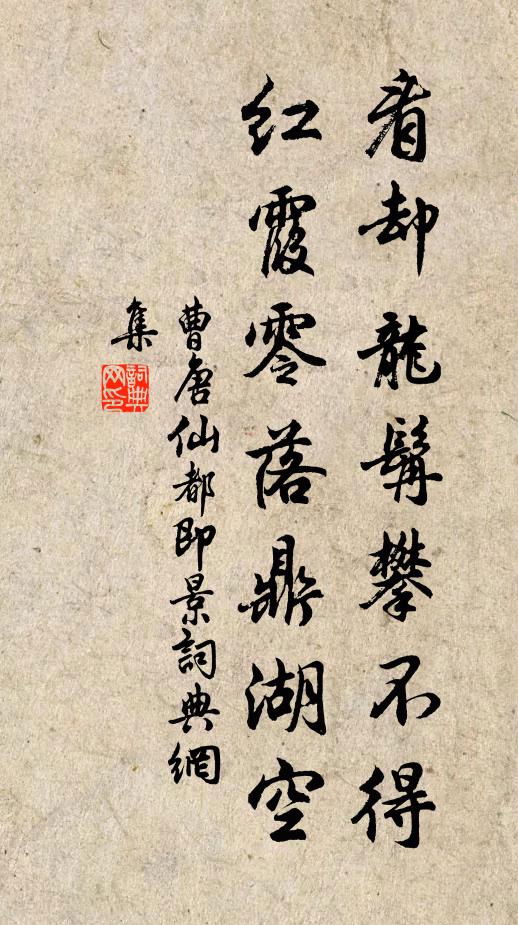 看却龍髯攀不得
紅霞零落鼎湖空
曹唐仙都即景詞典網
集
詞典
网印